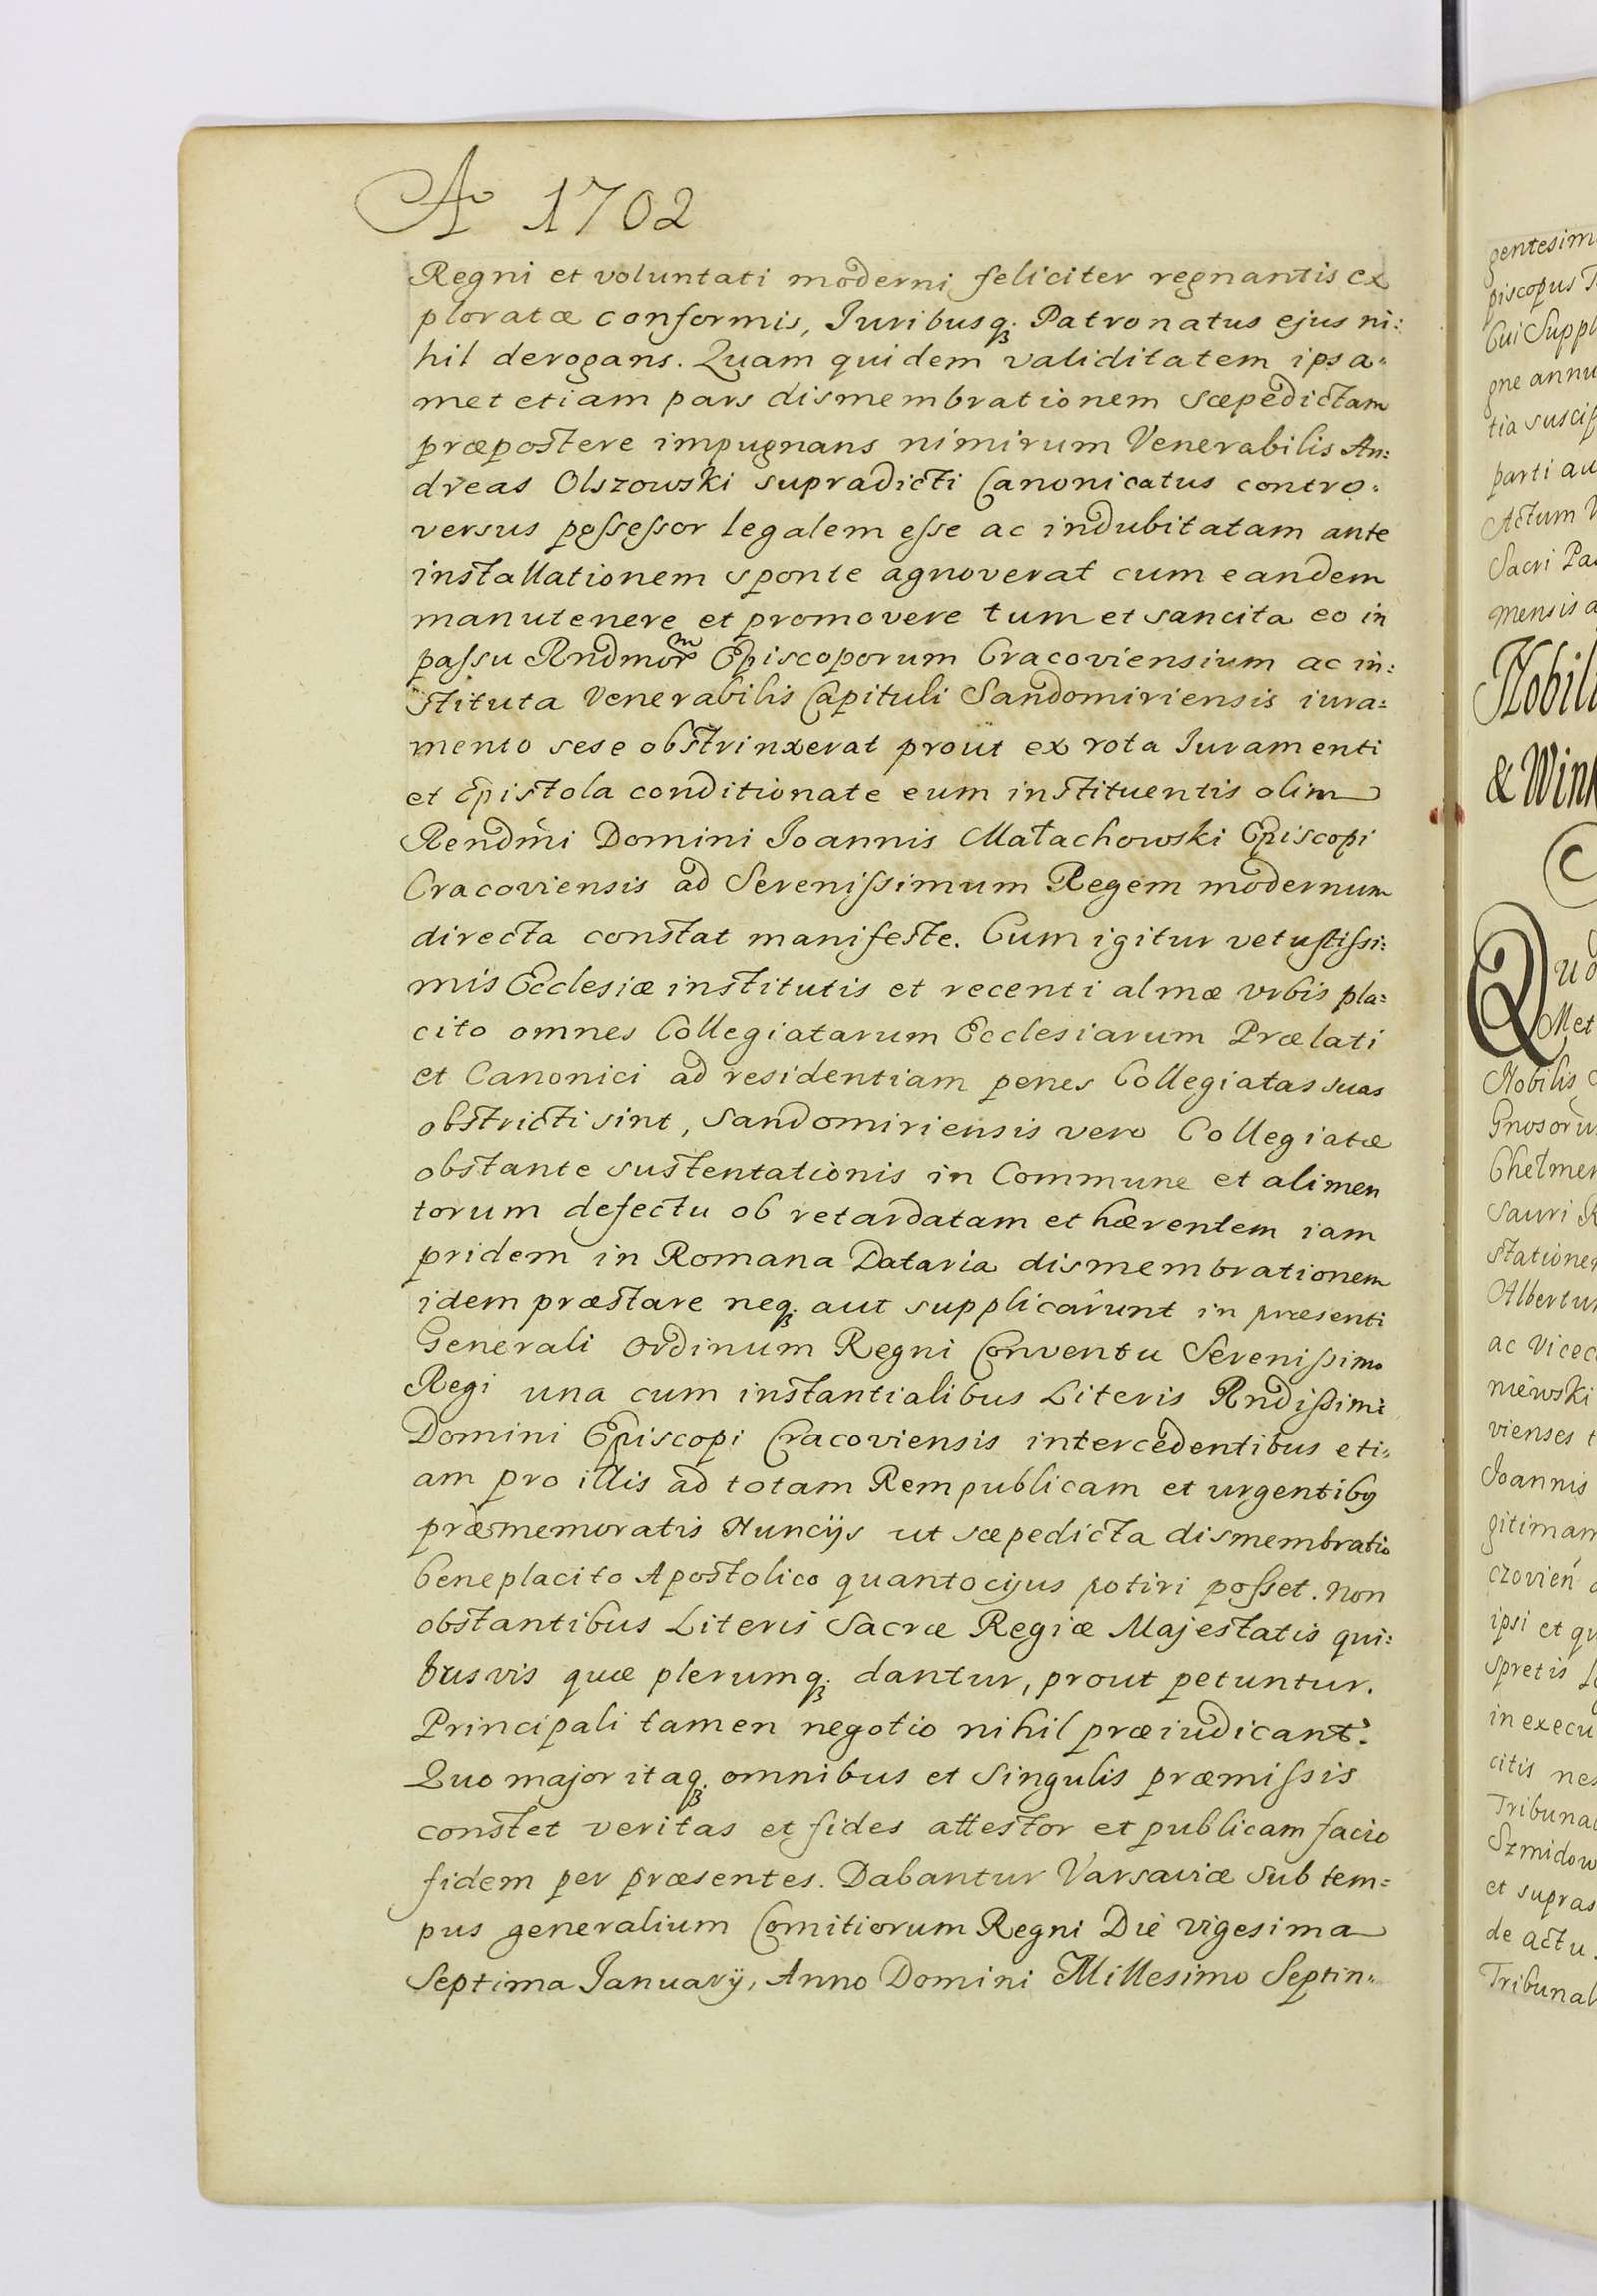 Ao 1702
Regni et voluntati moderni feliciter regnantis ex
ploratæ conformis, Juribusq; Patronatus ejus ni:
hil derogans. Quam quidem validitatem ipsa=
met etiam pars dismembrationem sæpedictam
præpostere impugnans nimirum Venerabilis An:
dreas Olszowski supradicti Canonicatus contro:
versus possessor legalem esse ac indubitatam ante
installationem sponte agnoverat cum eandem
manutenere et promovere tum et sancita eo in
passu Rndmorm Episcoporum Cracoviensium ac in:
stituta Venerabilis Capituli Sandomiriensis iura=
mento sese obstrinxerat proüt ex rota Juramenti
et Epistola conditionate eum instituentis olim
Rendmi Domini Joannis Małachowski Episcopi
Cracoviensis ad Serenissimum Regem modernum
directa constat manifeste. Cum igitur vetustissi:
mis Ecclesiæ institutis et recenti almæ urbis pla=
cito omnes Collegiatarum Ecclesiarum Prælati
et Canonici ad residentiam penes Collegiatas suas
obstricti sint, Sandomiriensis vero Collegiatæ
obstante sustentationis in Commune et alimen
torum defectu ob retardatam et hærentem iam
pridem in Romana Dataria dismembrationem
idem præstare neq; aut supplicarunt in præsenti
Generali Ordinum Regni Conventu Serenissimo
Regi una cum instantialibus Literis Rndissimi
Domini Episcopi Cracoviensis intercedentibus eti=
am pro illis ad totam Rempublicam et urgentibq
præmemoratis Nuncijs ut sæpedicta dismembratio
beneplacito Apostolico quantocijus potiri posset. Non
obstantibus Literis Sacræ Regiæ Majestatis qui:
busvis quæ plerumq; dantur, prout petuntur.
Principali tamen negotio nihil præiudicant.
Quo major itaq; omnibus et singulis præmissis
constet veritas et fides attestor et publicam facio
fidem per præsentes. Dabantur Varsaviæ sub tem=
pus generalium Comitiorum Regni Die vigesima
Septima Januarÿ, Anno Domini Millesimo Septin=
piscopus
Cui Suppl
gne annu
tia suscip
parti au
Actum
Sacri
mensis
Nobil
& Wink
Met
Nobilis
Albertu
Joannis
ipsi et qu
spretis
in execu
citis
Tribuna
et supras
de actu.
Tribunal